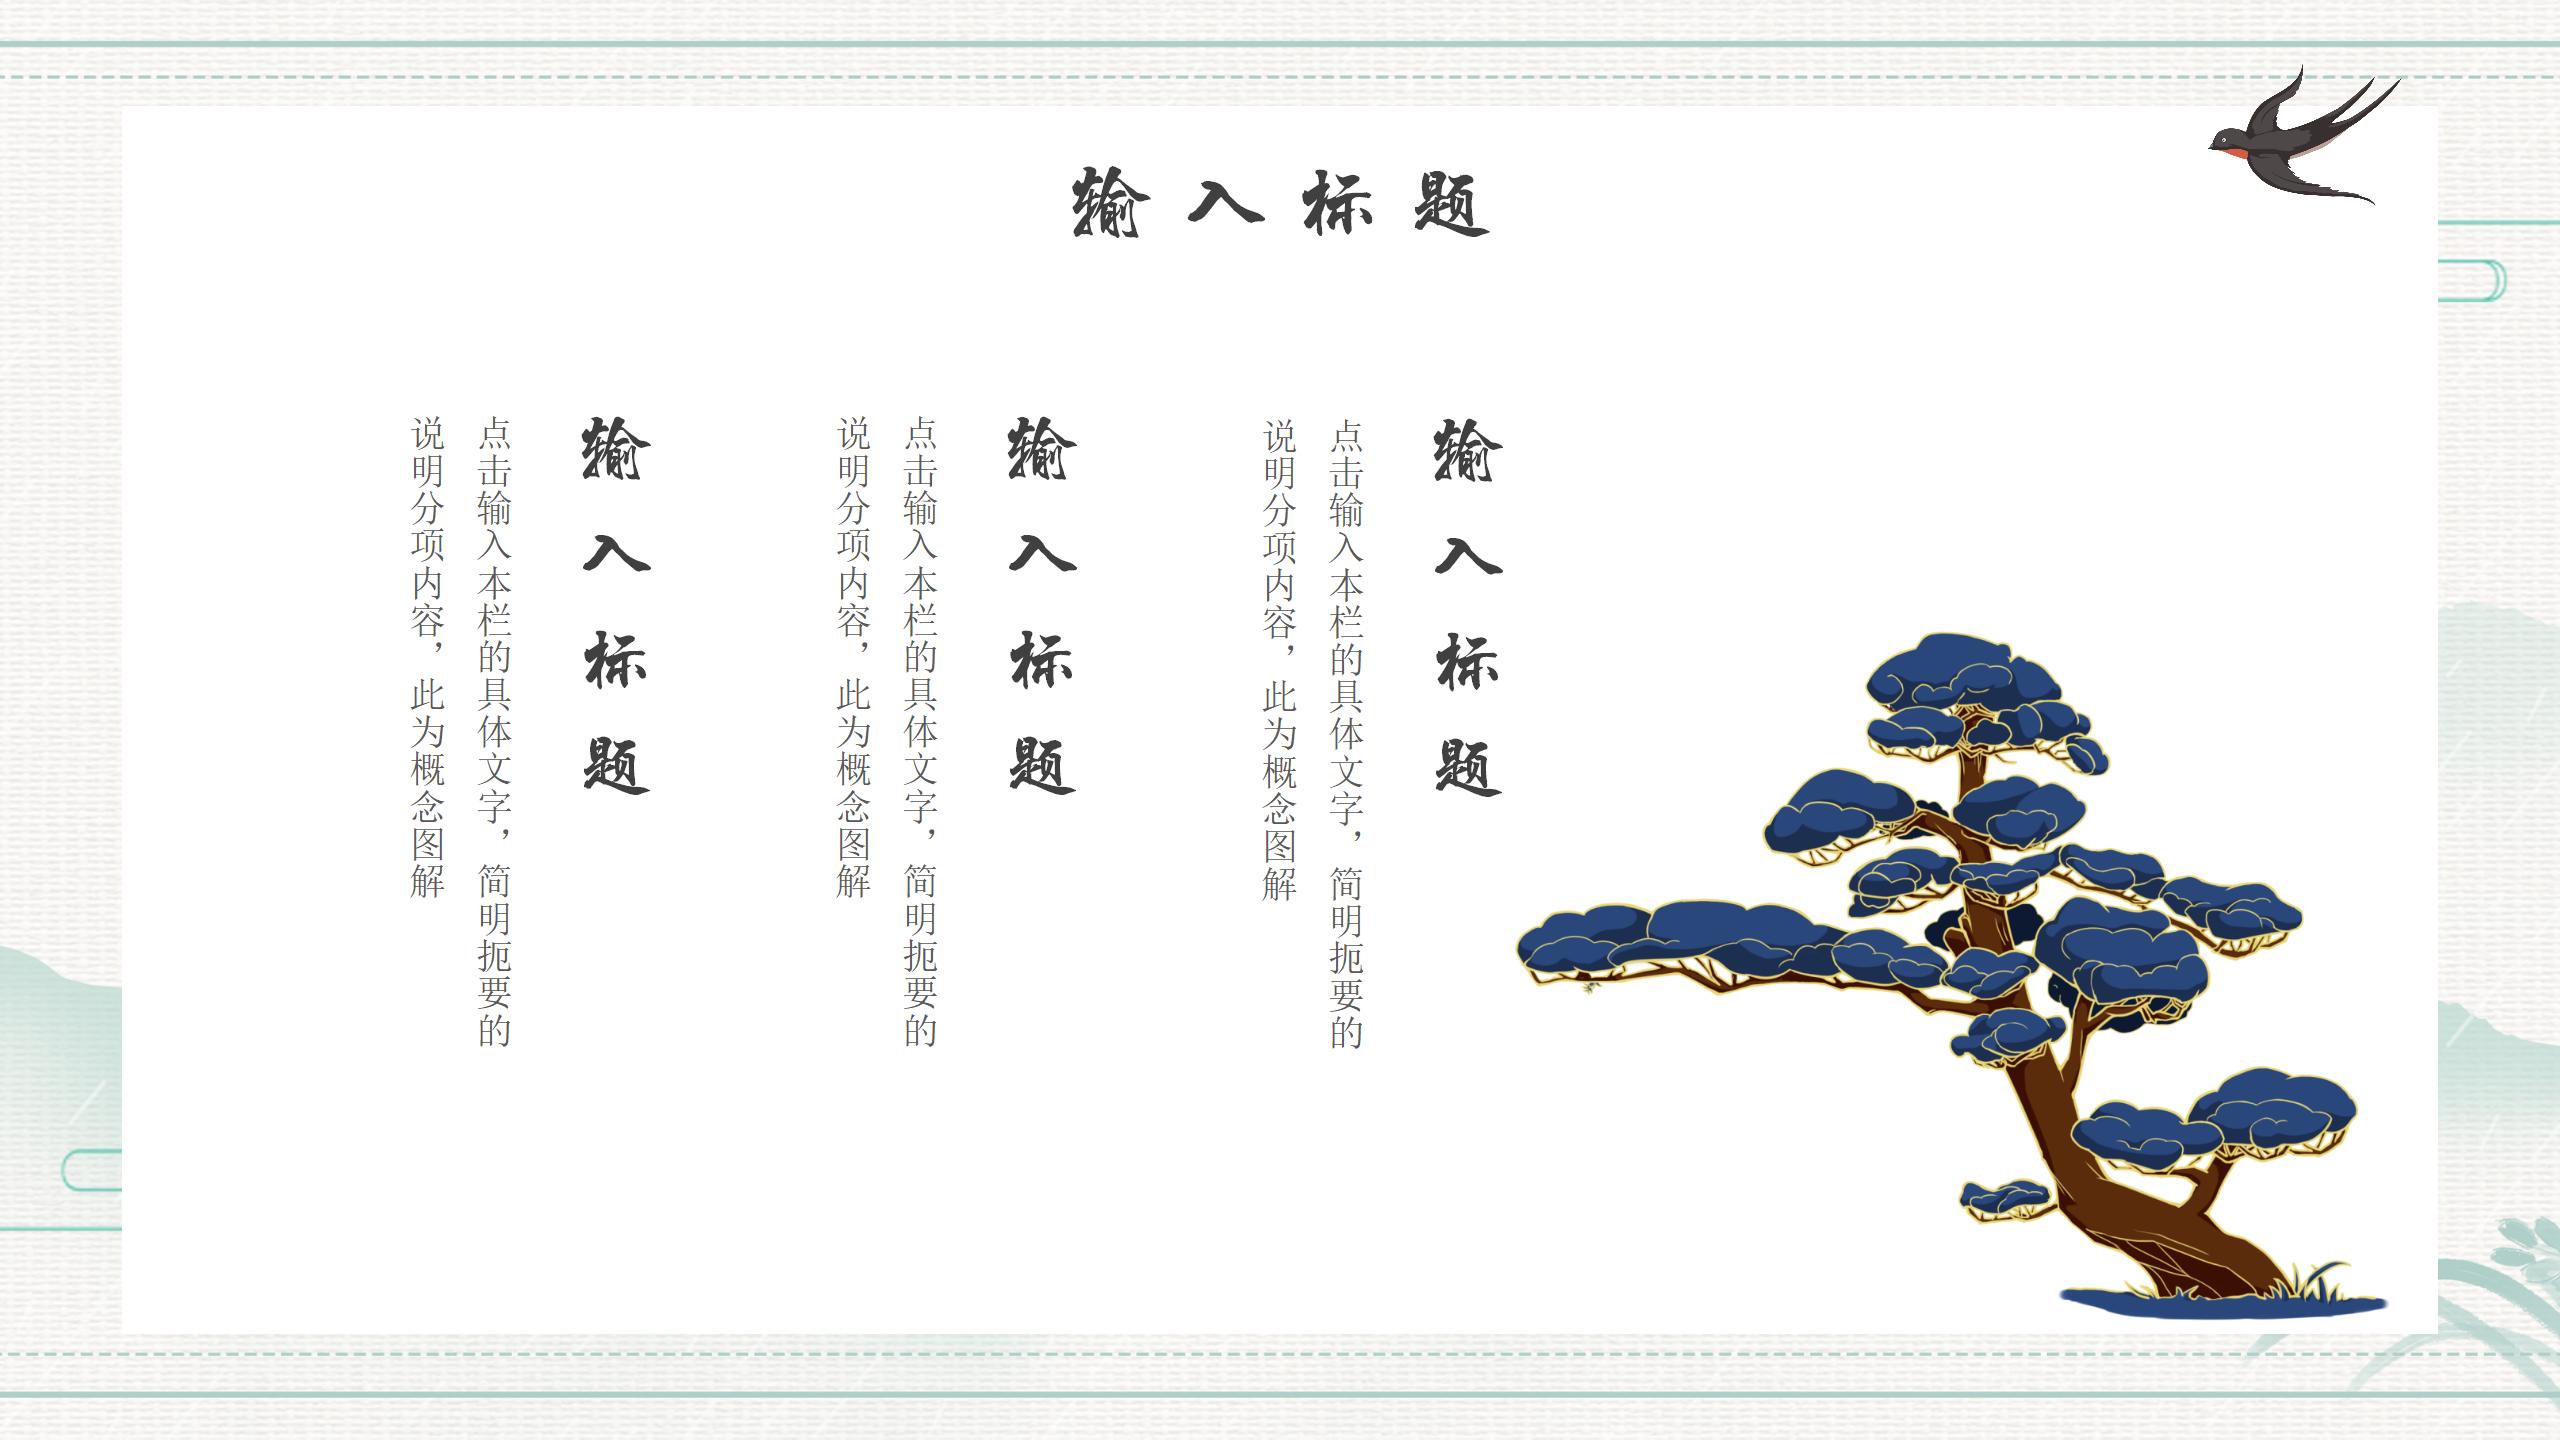 输入标题
输入标题
点击输入本栏的具体文字，简明扼要的
说明分项内容，此为概念图解
输入标题
点击输入本栏的具体文字，简明扼要的
说明分项内容，此为概念图解
输入标题
点击输入本栏的具体文字，简明扼要的
说明分项内容，此为概念图解